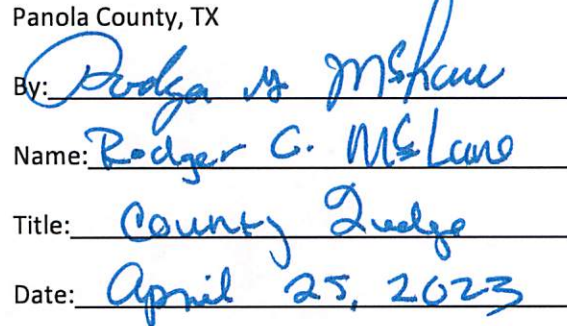 Panola County, TX
By: Rodger G McLane
Name: Rodger G. McLane
Title: County Judge
Date: April 25, 2023